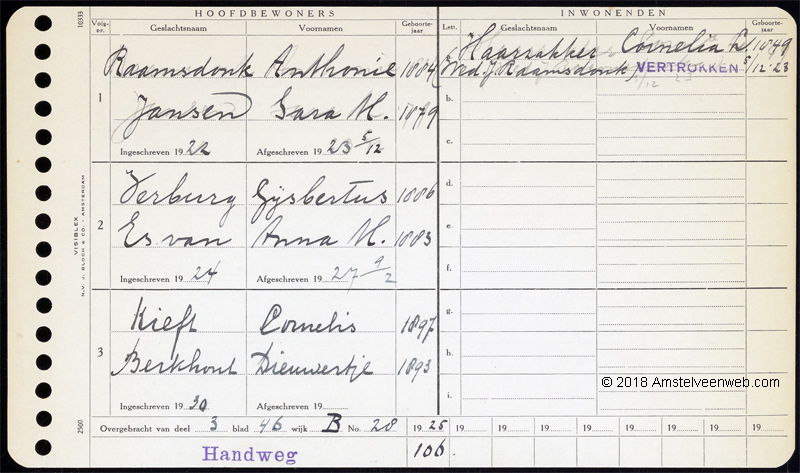 HOOFDBEWONERS INWONENDEN
Volg-nr. Geslachtsnaam Voornamen Geboorte-jaar Lett. Geslachtsnaam Voornamen Geboorte-jaar
10333
Raamsdonk Anthonie 1884 Haarsakker Cornelia L. 1849
(Wed. J. Raamsdonk) VERTROKKEN 5/12-23
1 Jansen Sara M. 1879 b.
c.
Ingeschreven 1922 Afgeschreven 1923 5/12
Verburg Gijsbertus 1886 d.
2 Es van Anna M. 1883 e.
f.
Ingeschreven 1924 Afgeschreven 1927 9/2
Kieft Cornelis 1897 g.
3 Berkhout Dieuwertje 1893 h.
i.
Ingeschreven 1930 Afgeschreven 19
© 2018 Amstelveenweb.com
Overgebracht van deel 3 blad 46 wijk B No. 28 1925 19 19 19 19 19 19 19
Handweg 106.
VISIBLEX
N.V. J. BLOCH & CO. - AMSTERDAM
2500